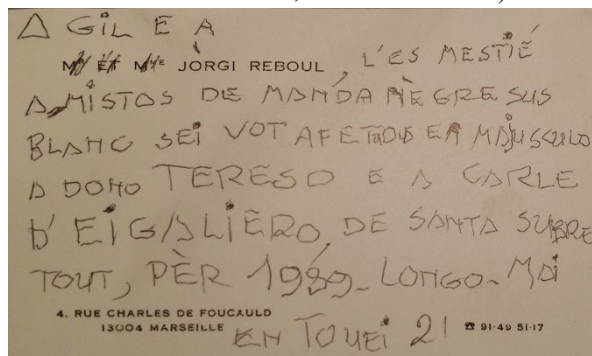 A GIL E A
M. ET Mme JÒRGI REBOUL, L'ES MESTIÉ
AMISTOS DE MANDA NÈGRE SUS
BLANC SEI VOT AFETUOUS EN MAJUSCULO
A DONO TERESO E A CARLE
D'EIGALIERO, DE SANTA SUBRE
TOUT, PÈR 1989. LONGO-MAI
4. RUE CHARLES DE FOUCAULD
13004 MARSEILLE EN TOUEI 2! ☎ 91-49 51-17